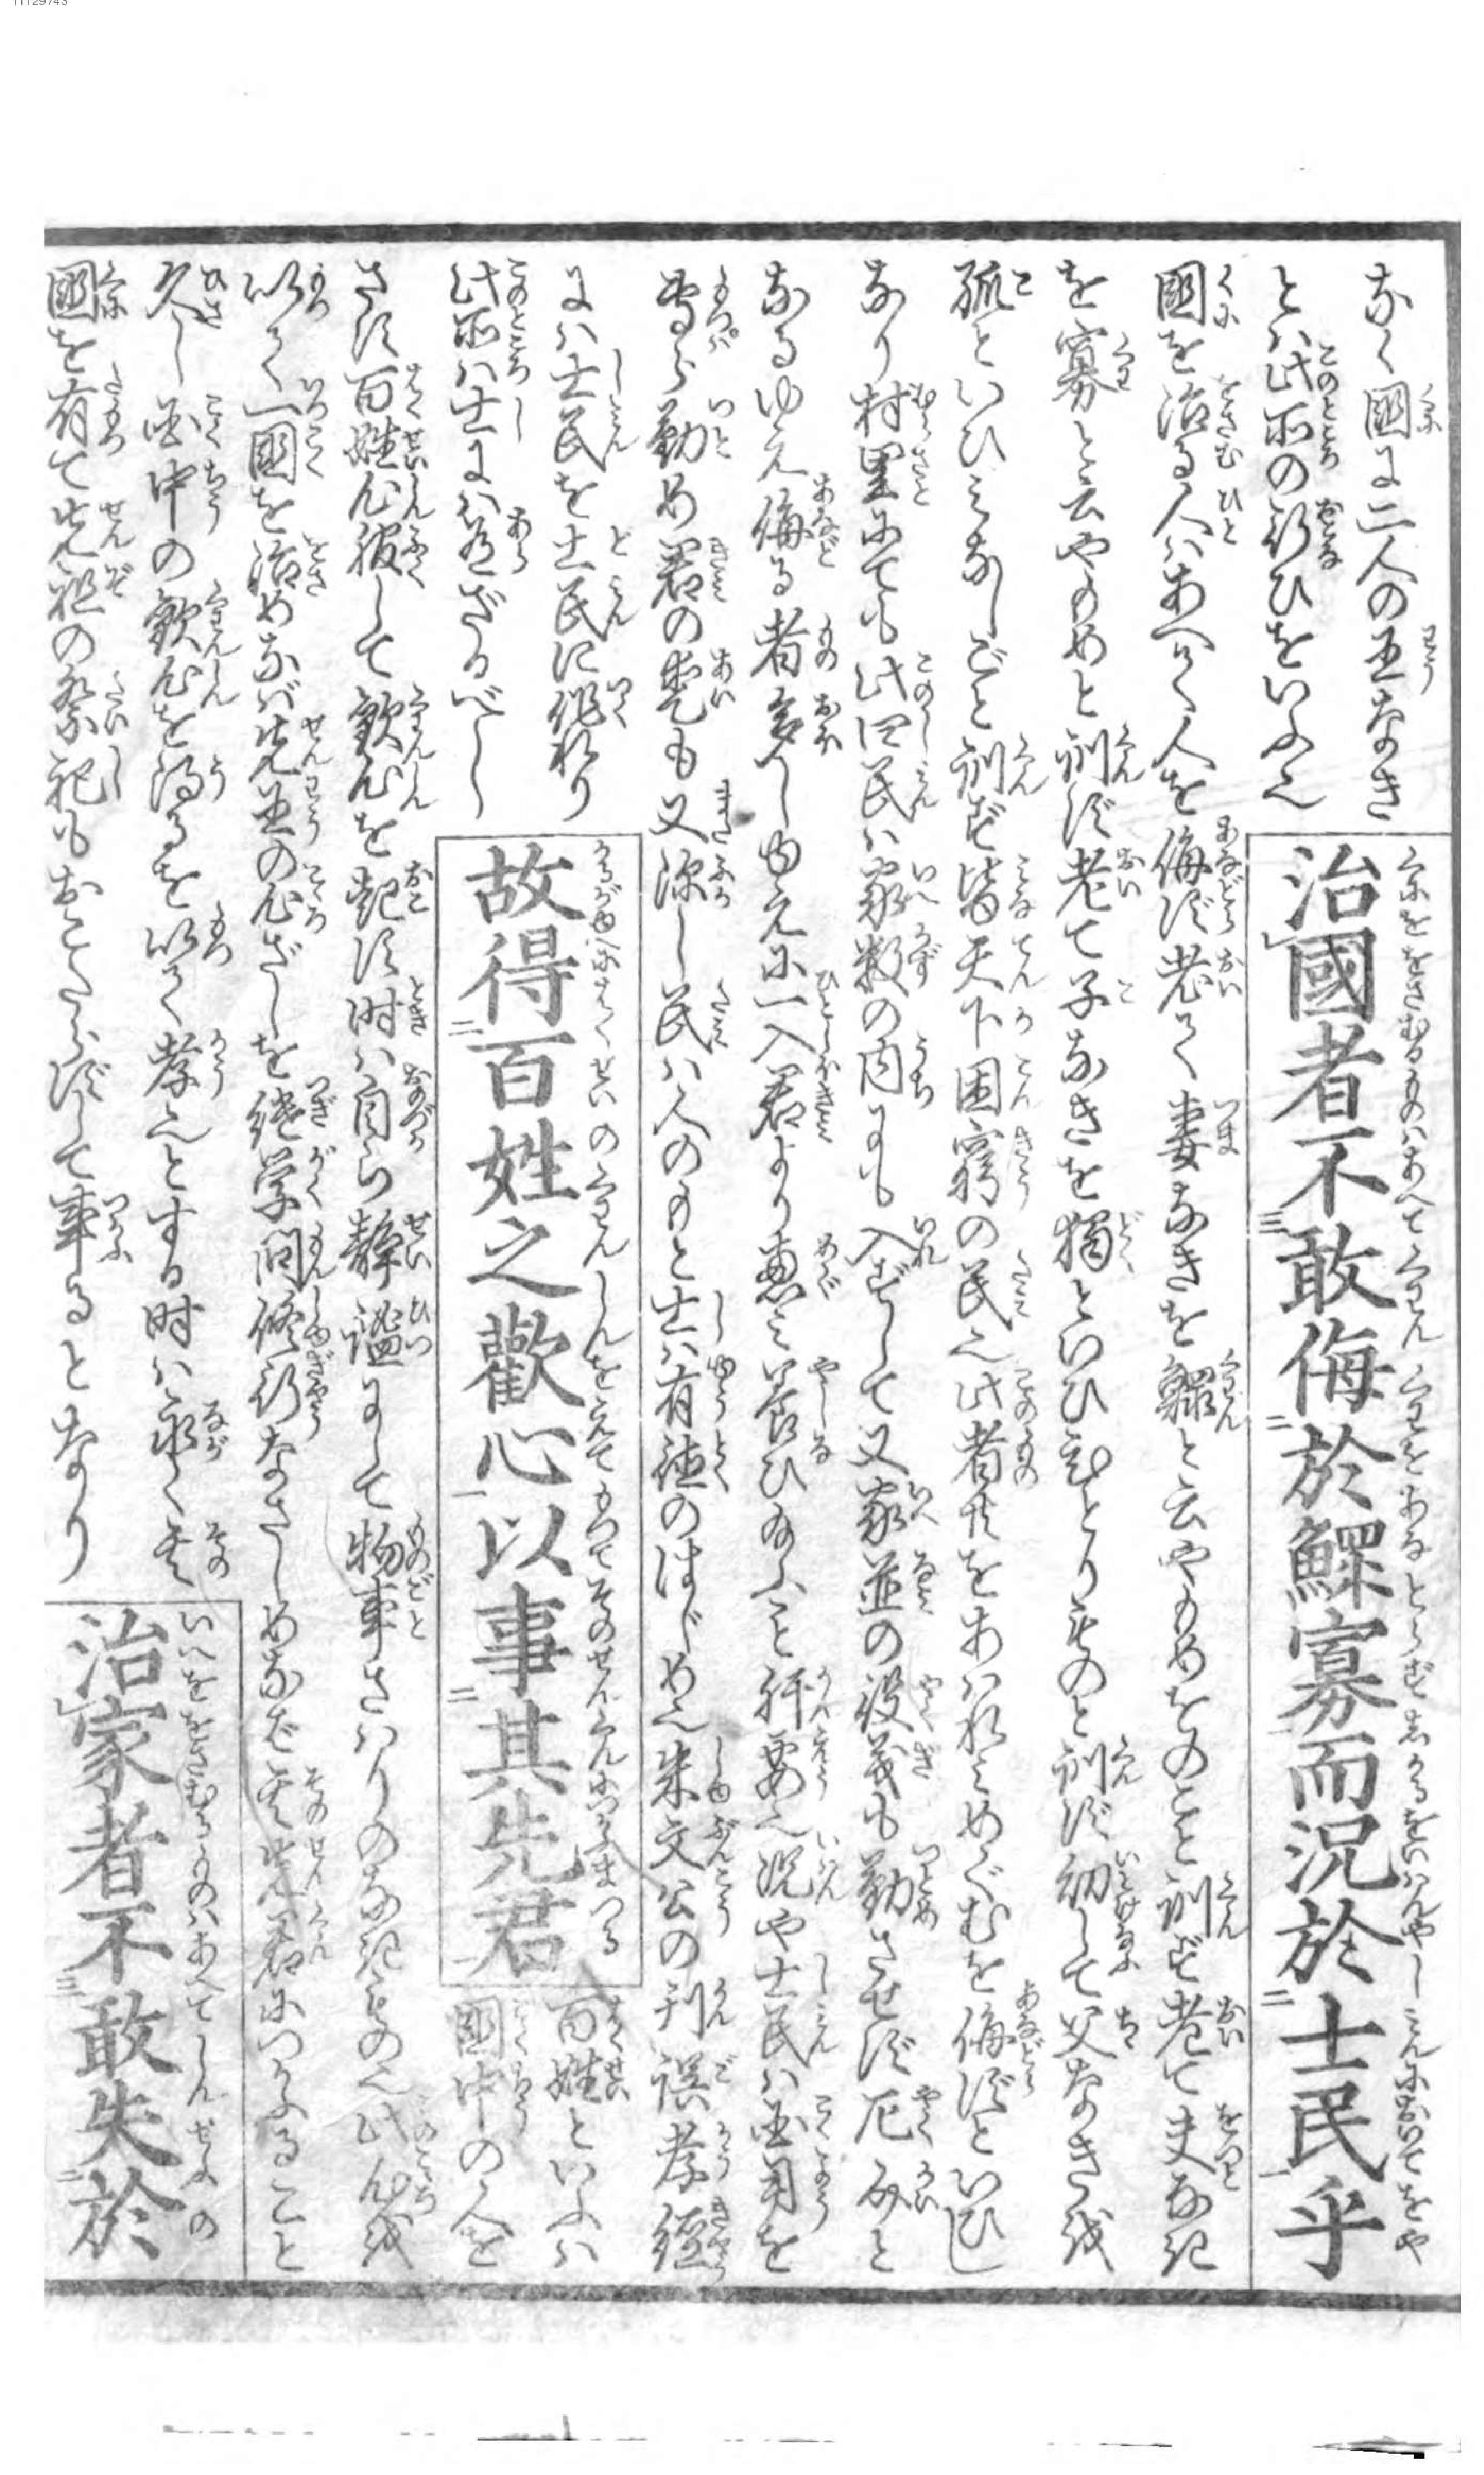 なく國に二人の王なき
とハ此所の行ひをいふ也
治國者不敢侮於鰥寡而況於士民乎
國を治る人ハあへて人を侮ず老て妻なきを鰥と云やもめをのこと訓ず老て夫なき
を寡と云やもめと訓ず老て子なきを獨といひひとりものと訓ず幼して父なきを
孤といひみなしごと訓ず皆天下困窮の民也此者共をあハれみめぐむを侮ずといひし
なり村里にても此四民ハ家数の内にも入ずして又家並の役義も勤させず厄介と
なるゆえ侮る者多しゆえに一入君より恵み養ひ給ふこと肝要也況や士民ハ国用を
専ら勤め君の愛も又深し民ハ人のもと士ハ有徳のはじめ也朱文公の刊誤孝經
にハ士民を土民に作れり
此所ハ士にハ有ざるべし
故得百姓之歡心以事其先君
百姓といふハ
國中の人を
さす百姓心服して歓心を起す時ハ自ら静謐にして物事さハりのなきもの也此心を
以て一國を治めなバ先王の心ざしを継学問修行なさしめなば其先君につかふること
久し国中の歓心を得るを以て孝也とする時ハ永く其
國を有て先祖の祭祀もおこたらずして事るとなり
治家者不敢失於